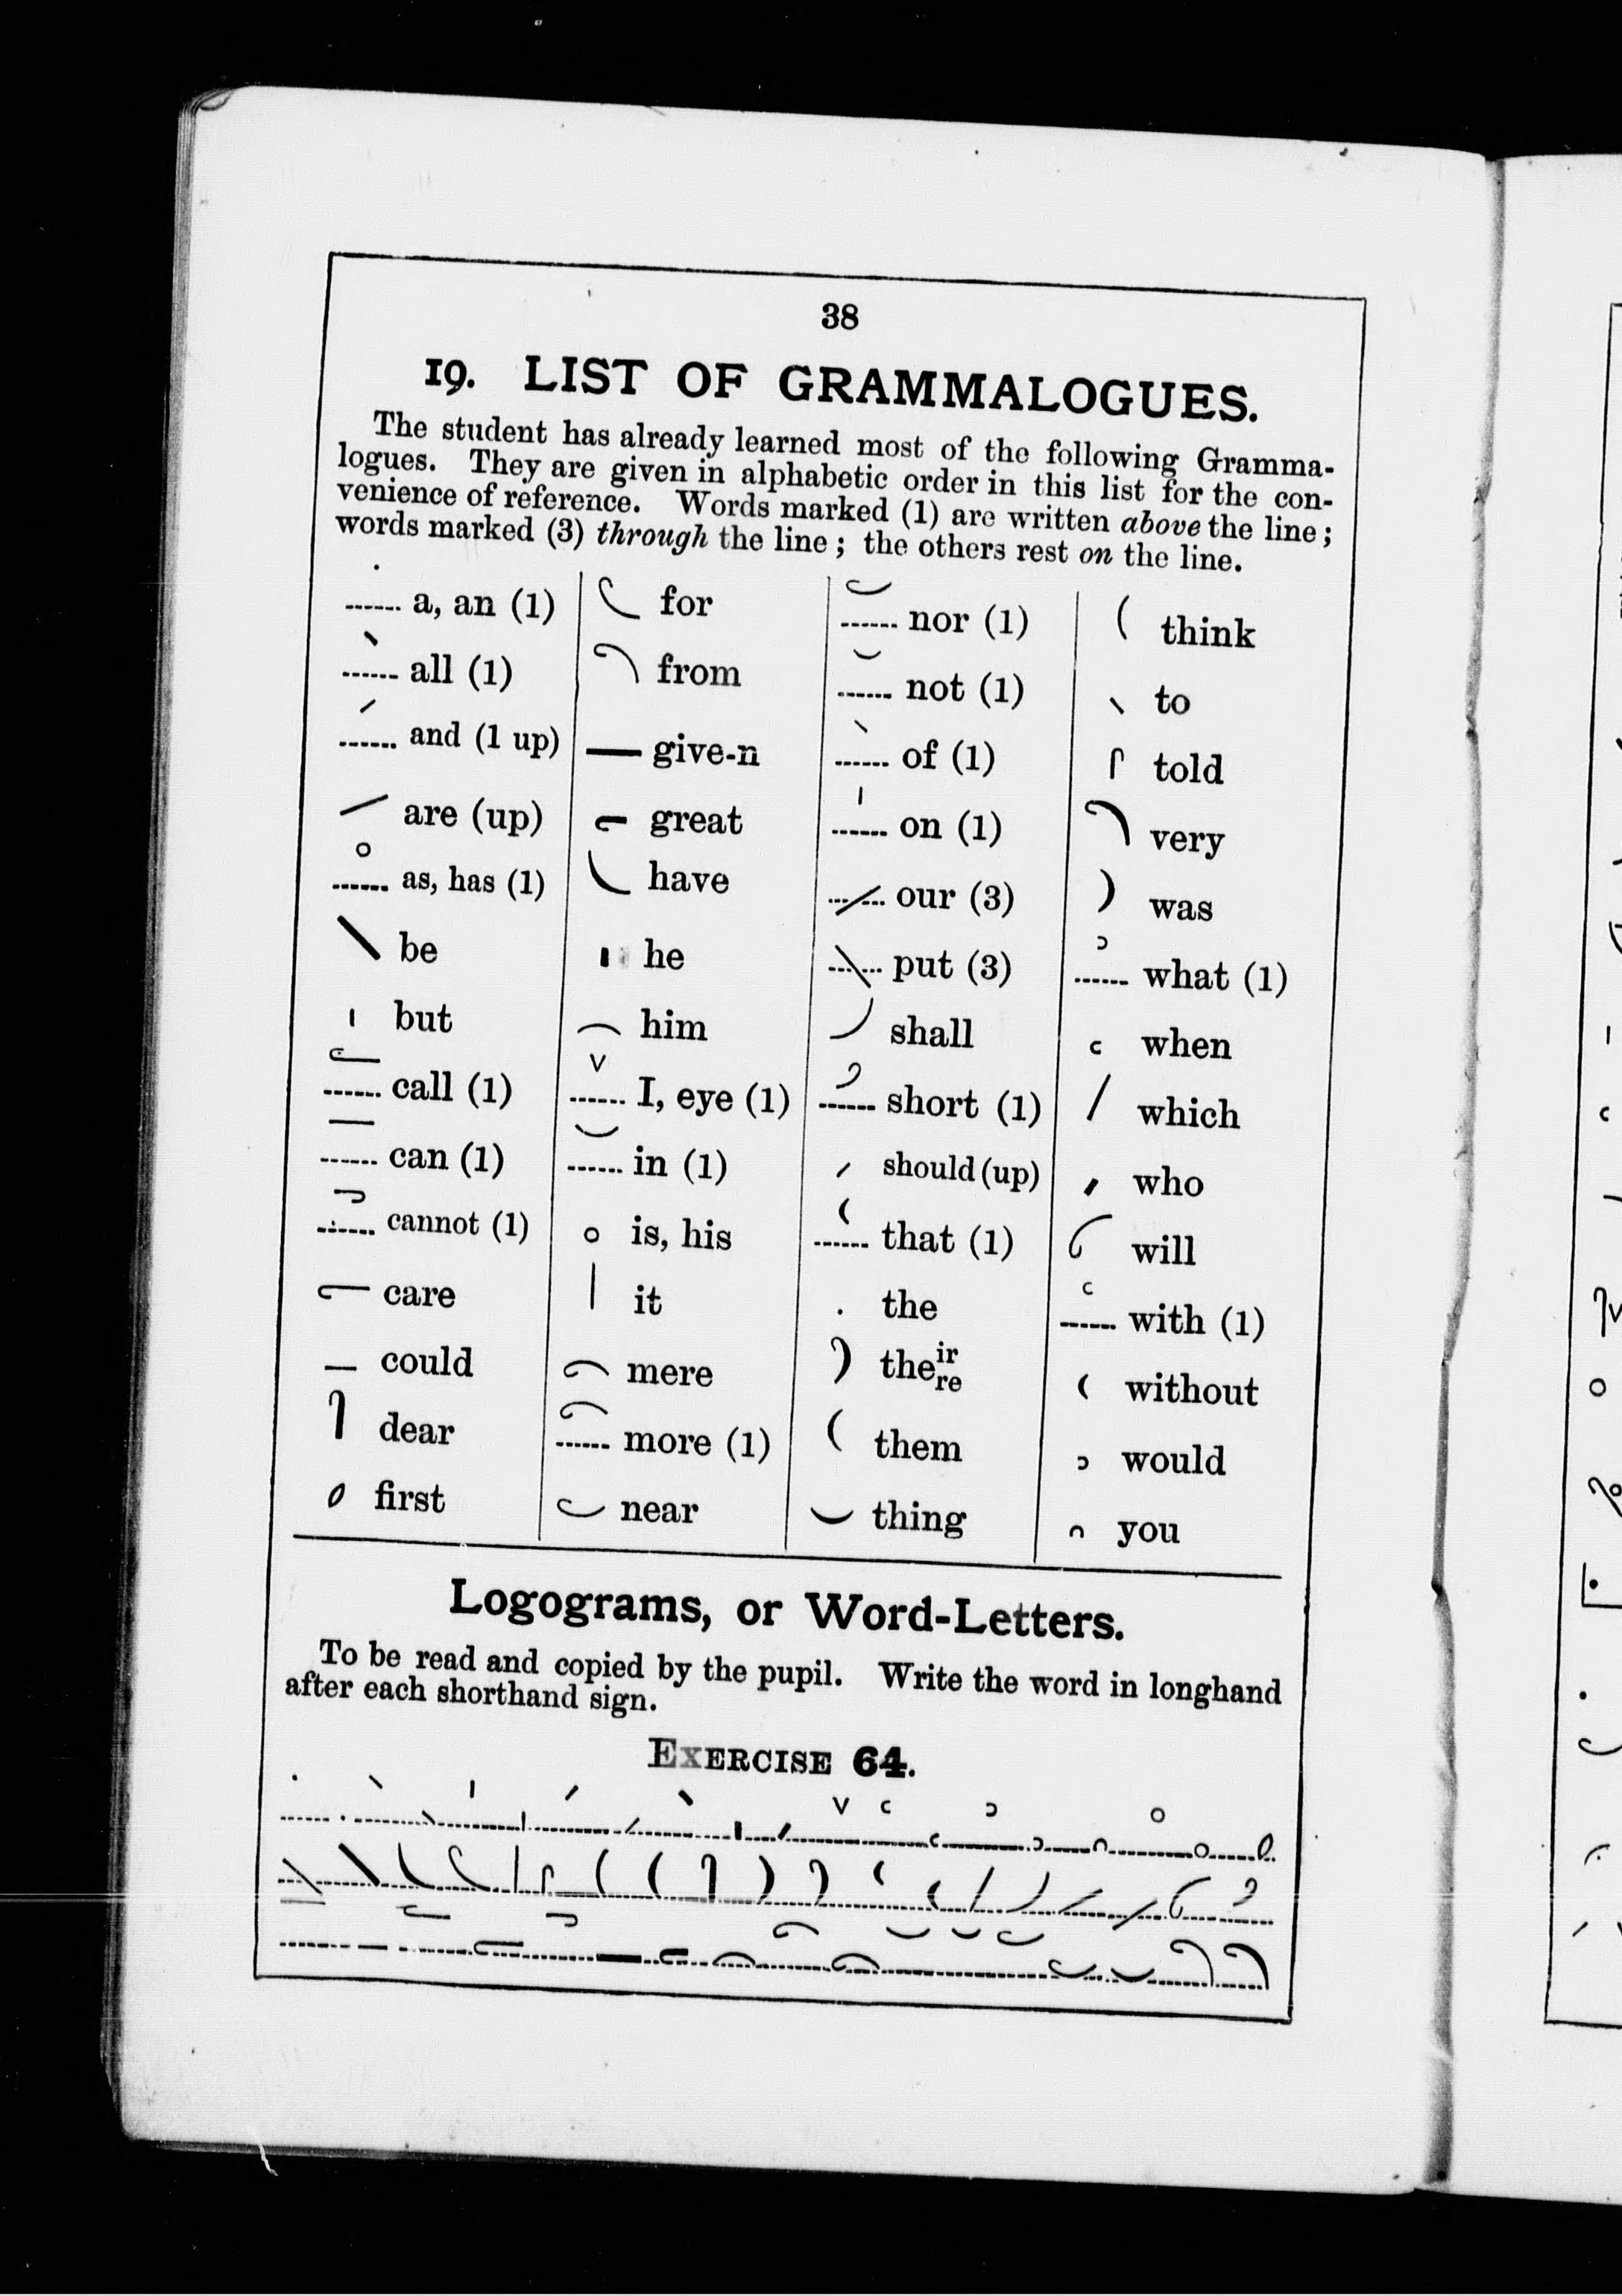 38
19. LIST OF GRAMMALOGUES.
The student has already learned most of the following Gramma-
logues. They are given in alphabetic order in this list for the con-
venience of reference. Words marked (1) are written above the line;
words marked (3) through the line; the others rest on the line.
a, an (1)
all (1)
and (1 up)
are (up)
as, has (1)
be
but
call (1)
can (1)
cannot (1)
care
could
dear
first
for
from
give-n
great
have
he
him
I, eye (1)
in (1)
is, his
it
mere
more (1)
near
nor (1)
not (1)
of (1)
on (1)
our (3)
put (3)
shall
short (1)
should (up)
that (1)
the
their re
them
thing
think
to
told
very
was
what (1)
when
which
who
will
with (1)
without
would
you
Logograms, or Word-Letters.
To be read and copied by the pupil. Write the word in longhand
after each shorthand sign.
EXERCISE 64.